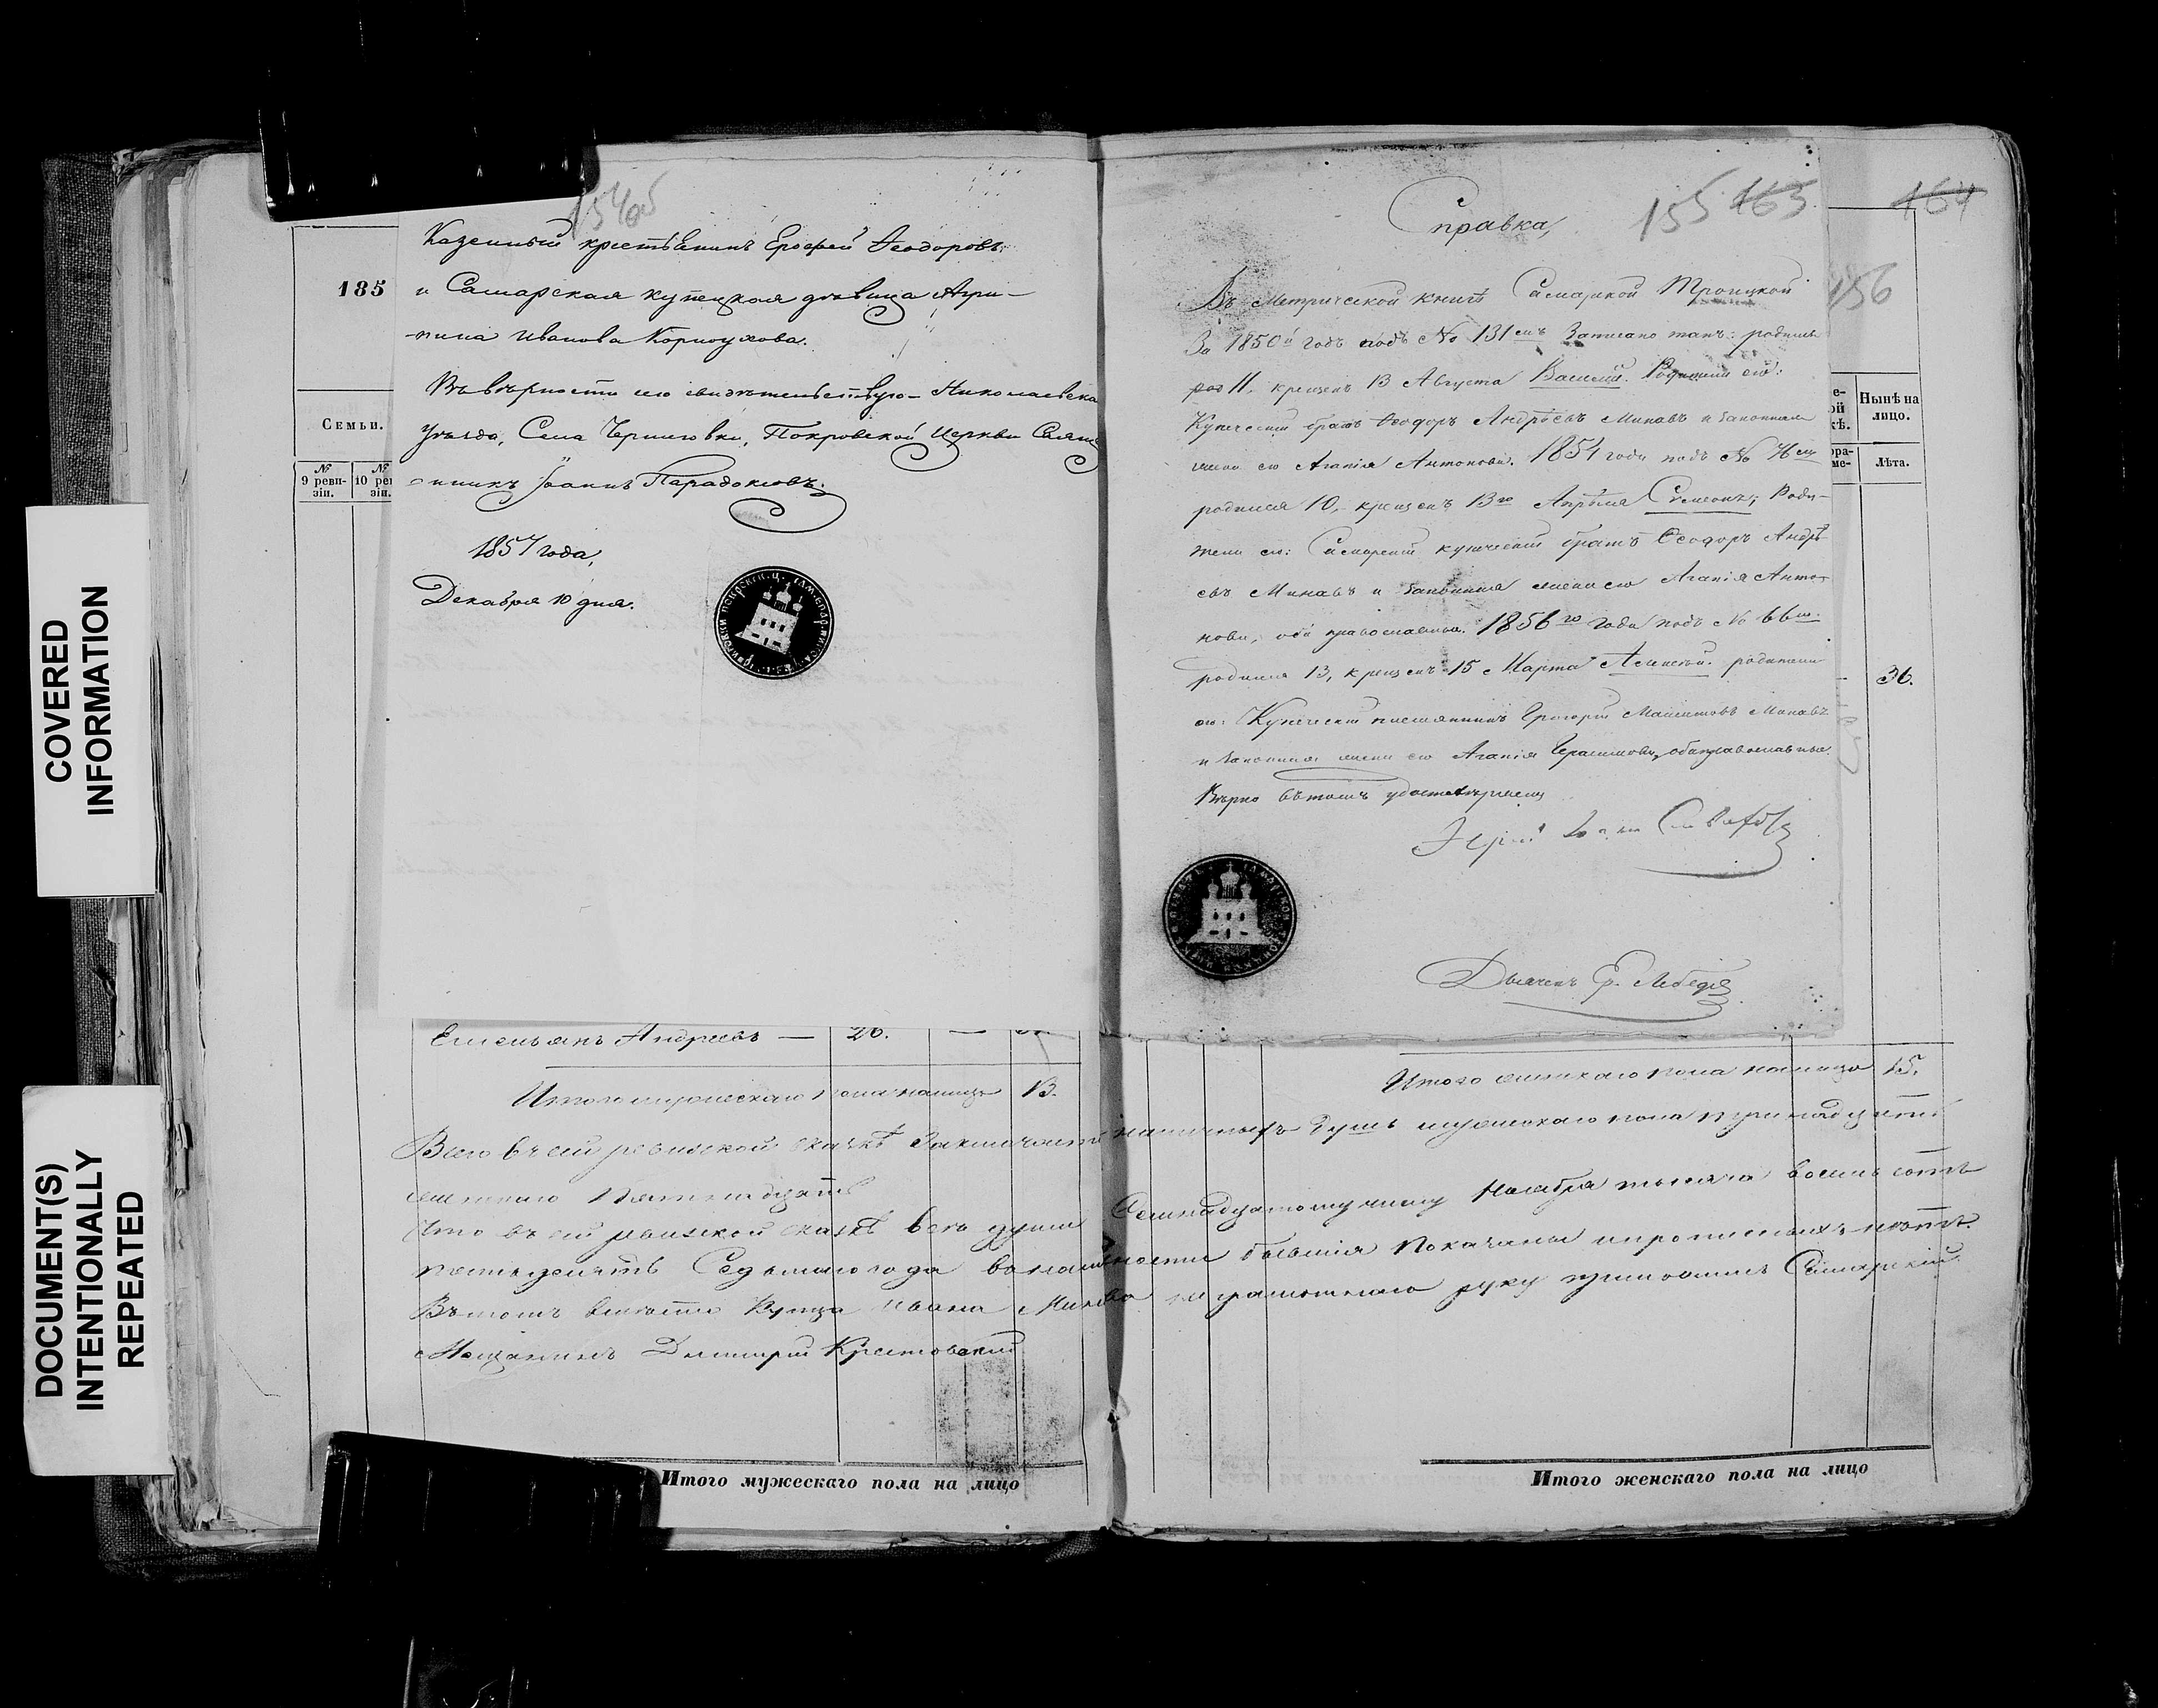 COVERED
INFORMATION
DOCUMENT(S)
INTENTIONALLY
REPEATED
154об
Казенный крестьянинъ Ерофей Ѳеодоровъ
и Самарская купецкая дѣвица Агри-
-пина Иванова Корноухова.
Въ вѣрности сего свидѣтельствую Николаевска
Уѣзда, Села Черниговки, Покровской Церкви Свяще
нникъ Іоаннъ Парадоксовъ.
1857 года,
Декабря 10 дня.
185
Семьи.
№
9 реви-
зіи.
№
10 ре
зіи.
Емельянъ Андреевъ — 26. —
Итого мужескаго пола налицо 13.
Итого мужескаго пола на лицо
155 163
164
156
Справка,
Въ Метрической книгѣ Самарской Троицкой
За 1850й годъ подъ № 131емъ Записано такъ: родился
11, крещенъ 13 Августа Василій. Родители его:
Купеческій братъ Ѳеодоръ Андрѣевъ Минавъ и законная
жена его Агапія Антонова. 1854 года подъ №
родился 10, крещенъ 13го Апрѣля Сѵмеонъ; Роди-
тели его: Самарскій купеческій братъ Ѳеодоръ Андрѣ-
евъ Минавъ и законная жена его Агапія Анто-
нова, оба православные. 1856го года подъ № 66ю
родился 13, крещенъ 15 Марта Алексѣй. родители
его: Купеческій племянникъ Григорій Минавъ
и законная жена его Агапія Герасимова, оба православные.
Вѣрно въ томъ удостовѣряемъ
Іерей
Дьячекъ Лебедев
Нынѣ на
лицо.
Лѣта.
36.
Итого женскаго пола налицо 15.
Всего въ сей ревизской сказкѣ Заключается наличныхъ душъ мужескаго пола тринадцать
женскаго Пятнадцать
Что въ сей ревизской сказкѣ всѣ души Семнадцатому числу Ноября тысяча восемь сотъ
пятьдесятъ Седьмаго года въ наличности бывшія показаны и прописныхъ нѣтъ.
Въ томъ вмѣсто Купца Ивана Минева неграмотнаго руку приложилъ Самарскій
Мещанинъ Димитрій Крестовскій
Итого женскаго пола на лицо